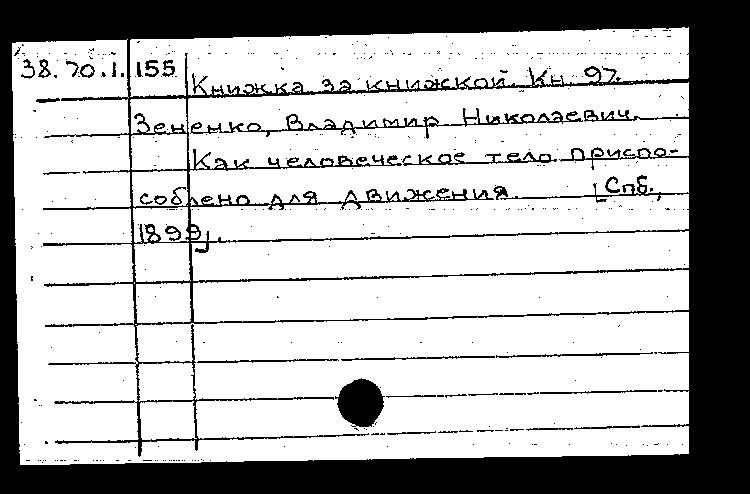 38.70.1.155 Книжка за книжкой. Кн. 97.
Зененко, Владимир Николаевич.
Как человеческое тело приспо-
соблено для движения. [Спб.,
1899].